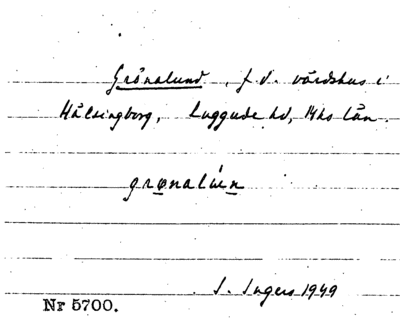 Grönalund, f.d. värdshus i
Hälsingborg, Luggude hd, Mhs län.
grønalúen
I. Ingers 1949
Nr 5700.